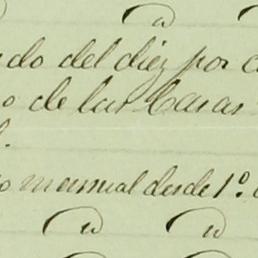 a
do del diez por c
o de las Casas
mensual desde 1º.